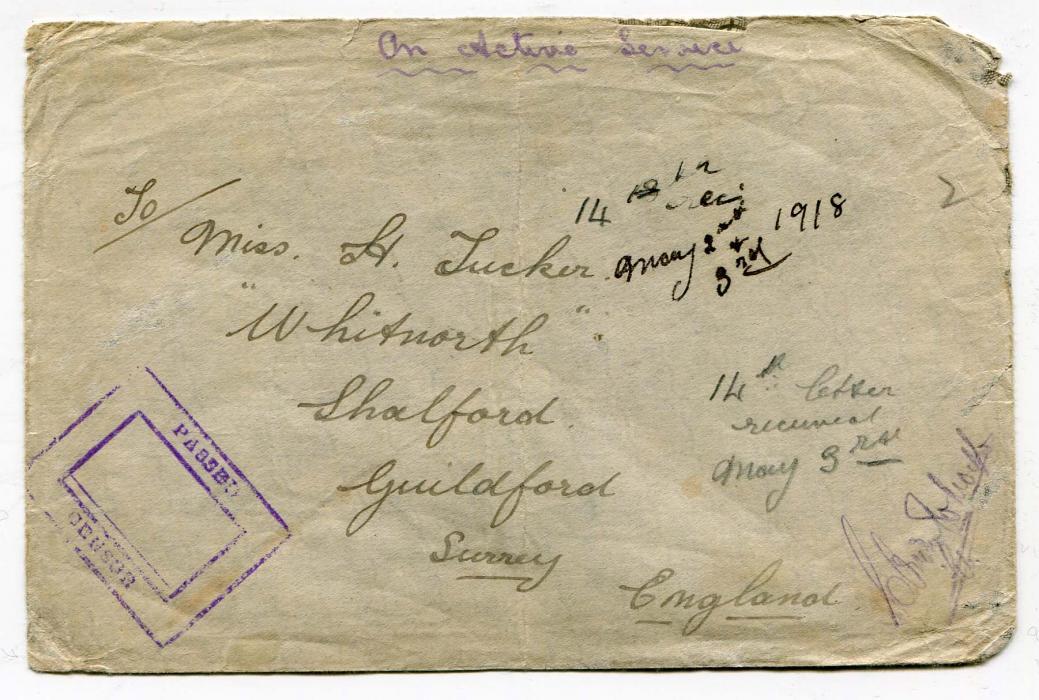 On Active Service
To
Miss. H. Tucker.
"Whitnorth"
Shalford.
Guildford
Surrey
England.
14
rec:
May 2nd & 3rd 1918
14th letter
received
May 3rd
2
PASSED
CENSOR